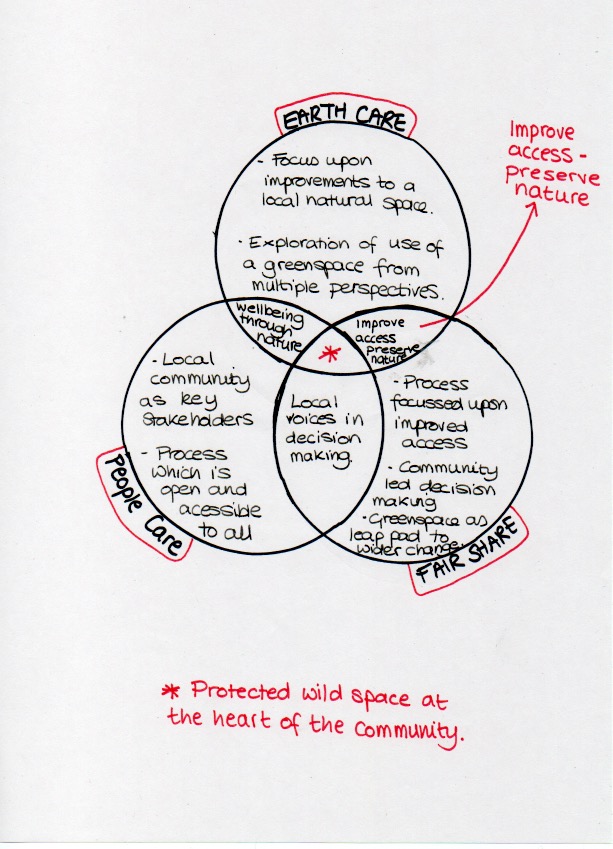 EARTH CARE
Improve
access -
preserve
nature
- Focus upon
improvements to a
local natural space.
- Exploration of use of
a greenspace from
multiple perspectives.
wellbeing
through
nature
improve
access
preserve
nature
*
- Local
community
as key
stakeholders
- Process
which is
open and
acessible
to all
Local
voices in
decision
making.
- Process
focussed upon
improved
access
- Community
led decision
making
- Greenspace as
leap pad to
wider change.
People Care
FAIR SHARE
* Protected wild space at
the heart of the community.